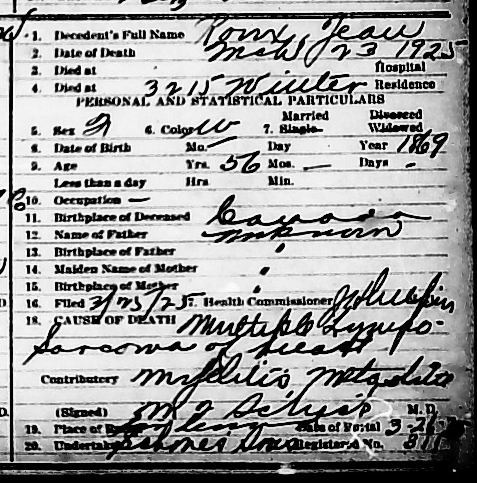 1. Decedent's Full Name Roux, Jean
2. Date of Death Mch 23 1925
3. Died at Hospital
4. Died at 3215 Winter Residence
PERSONAL AND STATISTICAL PARTICULARS
Married Divorced
5. Sex F 6. Color W 7. Single Widowed
8. Date of Birth Mo. — Day Year 1869
9. Age Yrs. 56 Mos. — Days -
Less than a day Hrs Min.
10. Occupation —
11. Birthplace of Deceased Canada
12. Name of Father Unknown
13. Birthplace of Father "
14. Maiden Name of Mother "
15. Birthplace of Mother "
16. Filed 3/25/25 17. Health Commissioner
18. CAUSE OF DEATH Multiple Lympho-
Sarcoma of
Contributory Myelitis
(Signed) M. D.
19. Place of Burial Date of Burial 3-26-
20. Undertaker Sons Registered No. 811